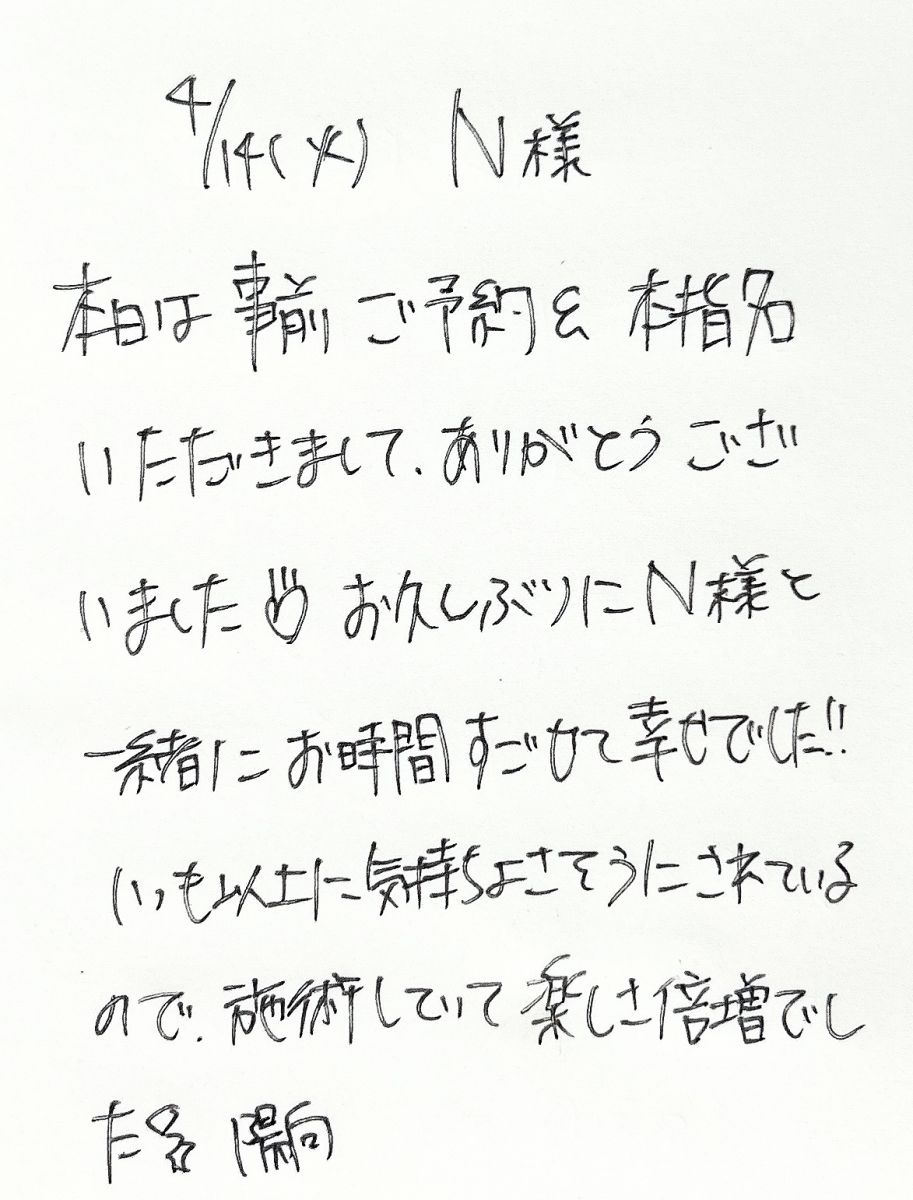 4/14(火) N様
本日は事前ご予約と本指名
いただきまして、ありがとうござ
いました お久しぶりにN様と
一緒にお時間すごせて幸せでした!!
いつも以上に気持ちよさそうにされている
ので、施術していて楽しさ倍増でし
た 陽向